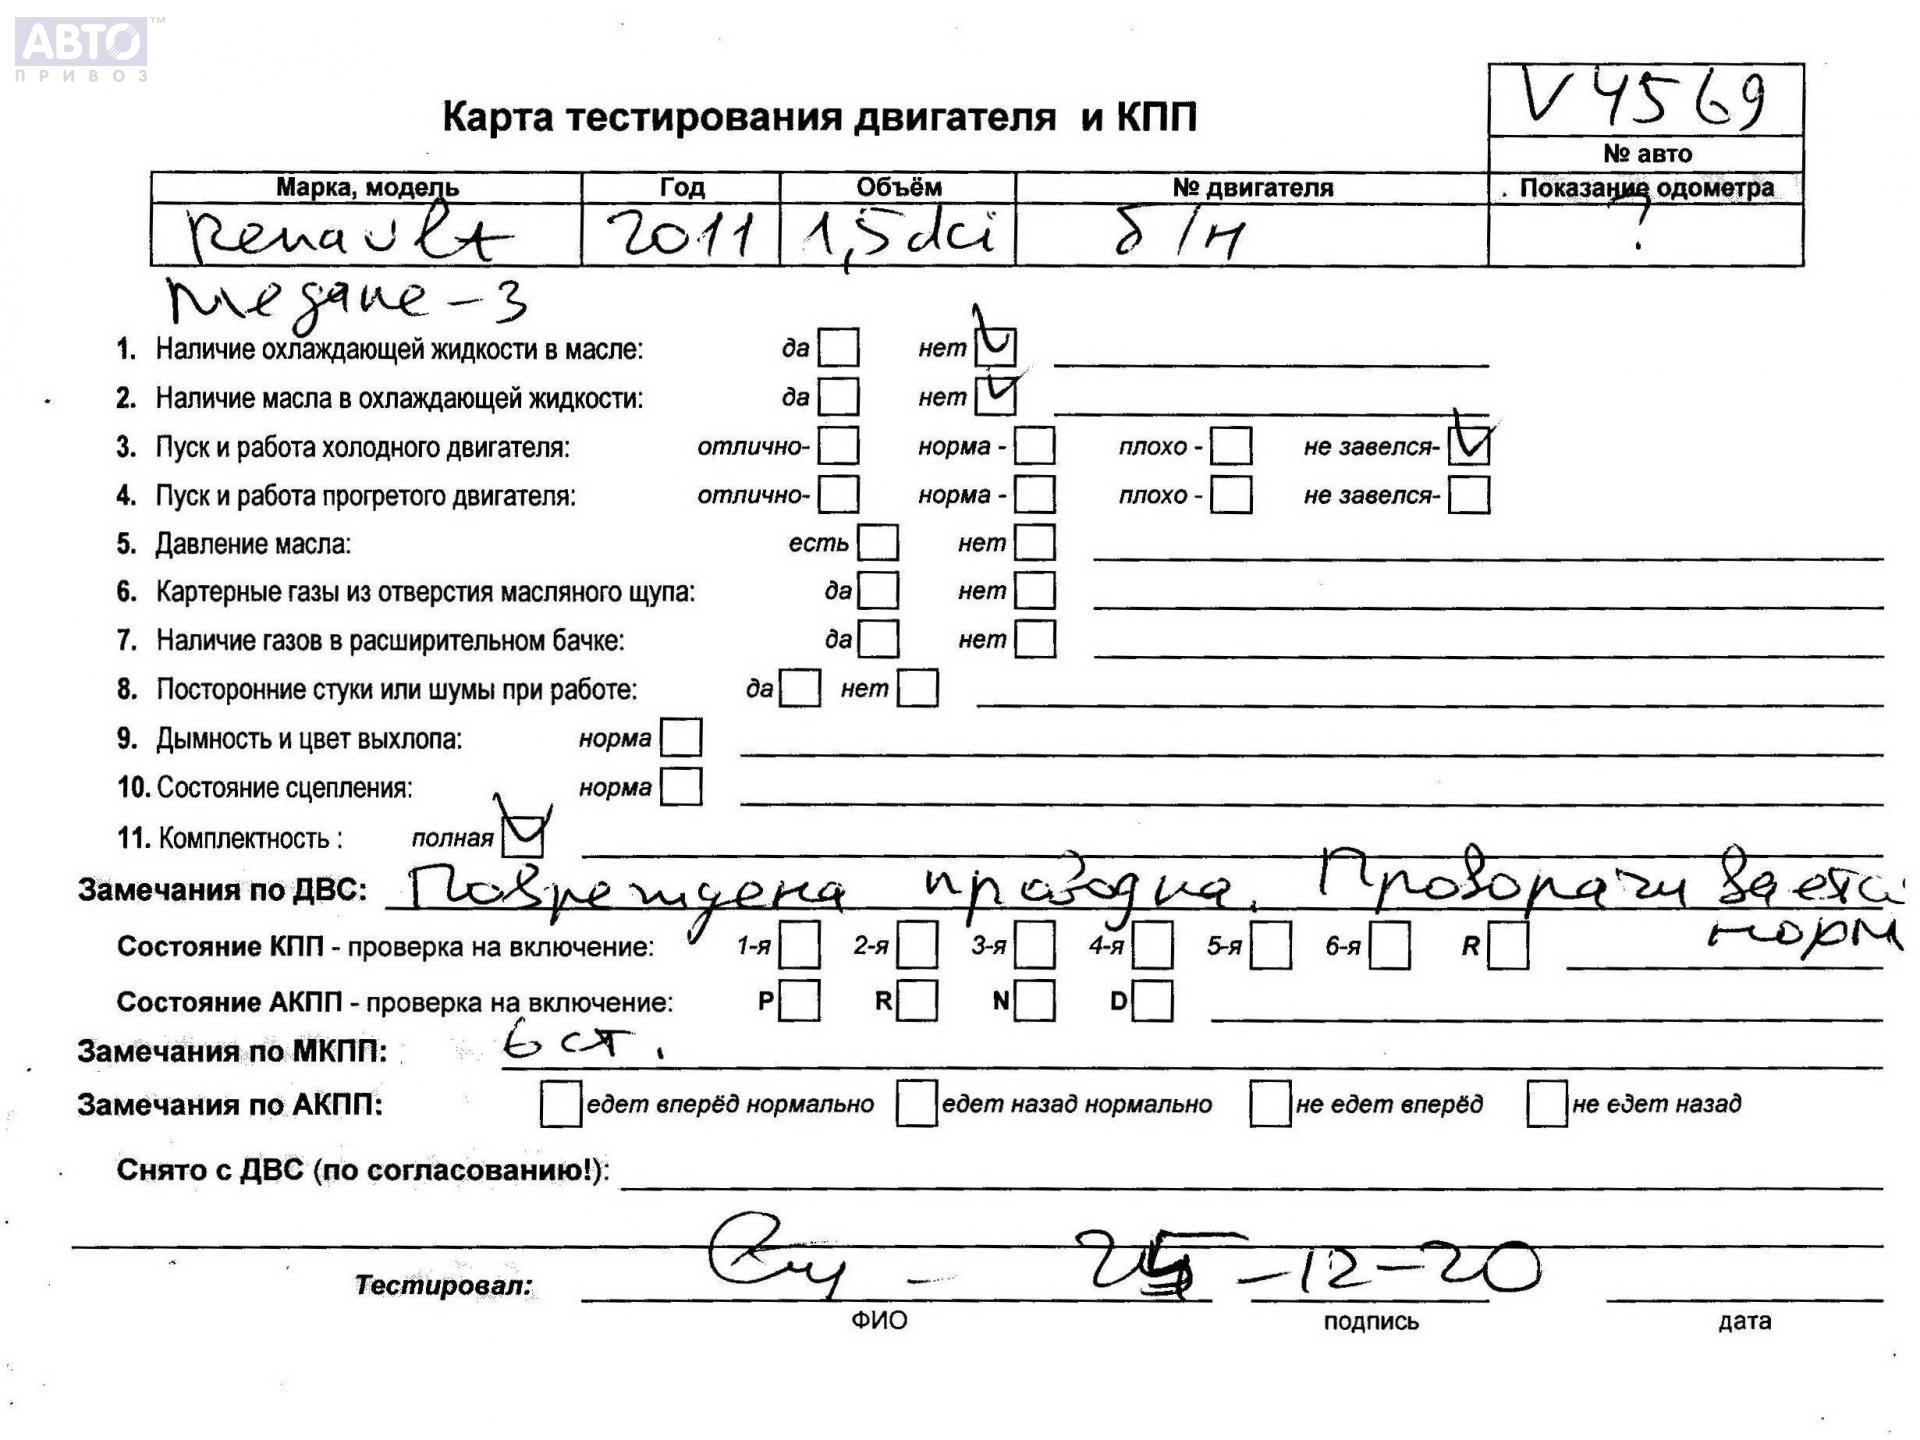 АВТО™
ПРИВОЗ
V4569
Карта тестирования двигателя и КПП
№ авто
Марка, модель Год Объём № двигателя Показание одометра
Renault 2011 1,5dci б/н ?
Megane-3
1. Наличие охлаждающей жидкости в масле: да нет
2. Наличие масла в охлаждающей жидкости: да нет
3. Пуск и работа холодного двигателя: отлично- норма - плохо - не завелся-
4. Пуск и работа прогретого двигателя: отлично- норма - плохо - не завелся-
5. Давление масла: есть нет
6. Картерные газы из отверстия масляного щупа: да нет
7. Наличие газов в расширительном бачке: да нет
8. Посторонние стуки или шумы при работе: да нет
9. Дымность и цвет выхлопа: норма
10. Состояние сцепления: норма
11. Комплектность : полная
Замечания по ДВС: Повреждена проводка. Проворачивается
норм
Состояние КПП - проверка на включение: 1-я 2-я 3-я 4-я 5-я 6-я R
Состояние АКПП - проверка на включение: P R N D
Замечания по МКПП: 6 ст.
Замечания по АКПП: едет вперёд нормально едет назад нормально не едет вперёд не едет назад
Снято с ДВС (по согласованию!):
Тестировал: -12-20
ФИО подпись дата